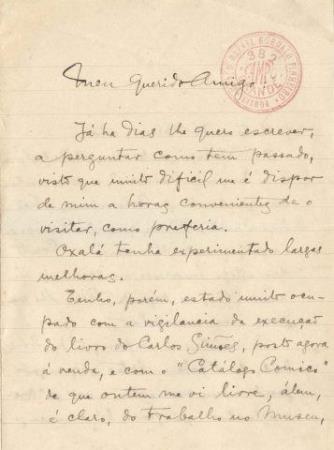 Meu Querido Amigo
Já ha dias lhe quero escrever,
a perguntar como tem passado,
visto que muito dificil me é dispor
de mim a horas convenientes de o
visitar, como preferia.
Oxalá tenha experimentado largas
melhoras.
Tenho, porém, estado muito ocu-
pado com a vigilancia da execução
do livro do Carlos Simões, posto agora
á venda, e com o "Catálogo Comico"
de que ontem me vi livre, álem,
é claro, do trabalho no Museu,
382
GRANDE
LISBOA